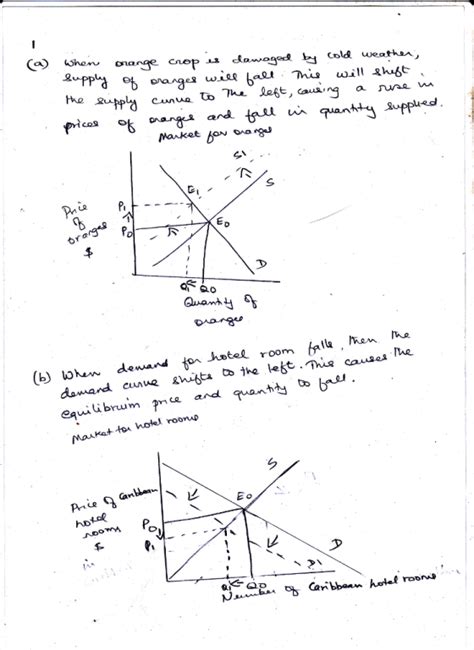 1
(a) When orange crop is damaged by cold weather,
supply of oranges will fall. This will shift
the supply curve to the left, causing a rise in
prices of oranges and fall in quantity supplied.
Market for oranges
S1
S
E1
Price
of
oranges
$
P1
P0
E0
D
Q1 Q0
Quantity of
oranges
(b) When demand for hotel room falls, then the
demand curve shifts to the left. This causes the
equilibrium price and quantity to fall.
Market for hotel rooms
S
Price of Caribbean
hotel
rooms
$
in
E0
P0
P1
D
D1
Q1 Q0
Number of Caribbean hotel rooms